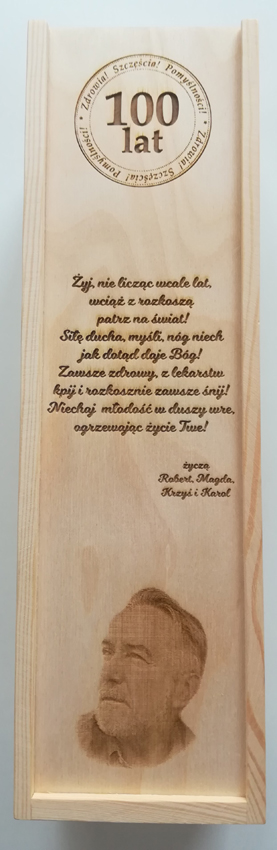 Zdrowia! Szczęścia! Pomyślności! • Zdrowia! Szczęścia! Pomyślności! •
100
lat
Żyj, nie licząc wcale lat,
wciąż z rozkoszą
patrz na świat!
Siłę ducha, myśli, nóg niech
jak dotąd daje Bóg!
Zawsze zdrowy, z lekarstw
kpij i rozkosznie zawsze śnij!
Niechaj młodość w duszy wre,
ogrzewając życie Twe!
życzą
Robert, Magda,
Krzyś i Karol